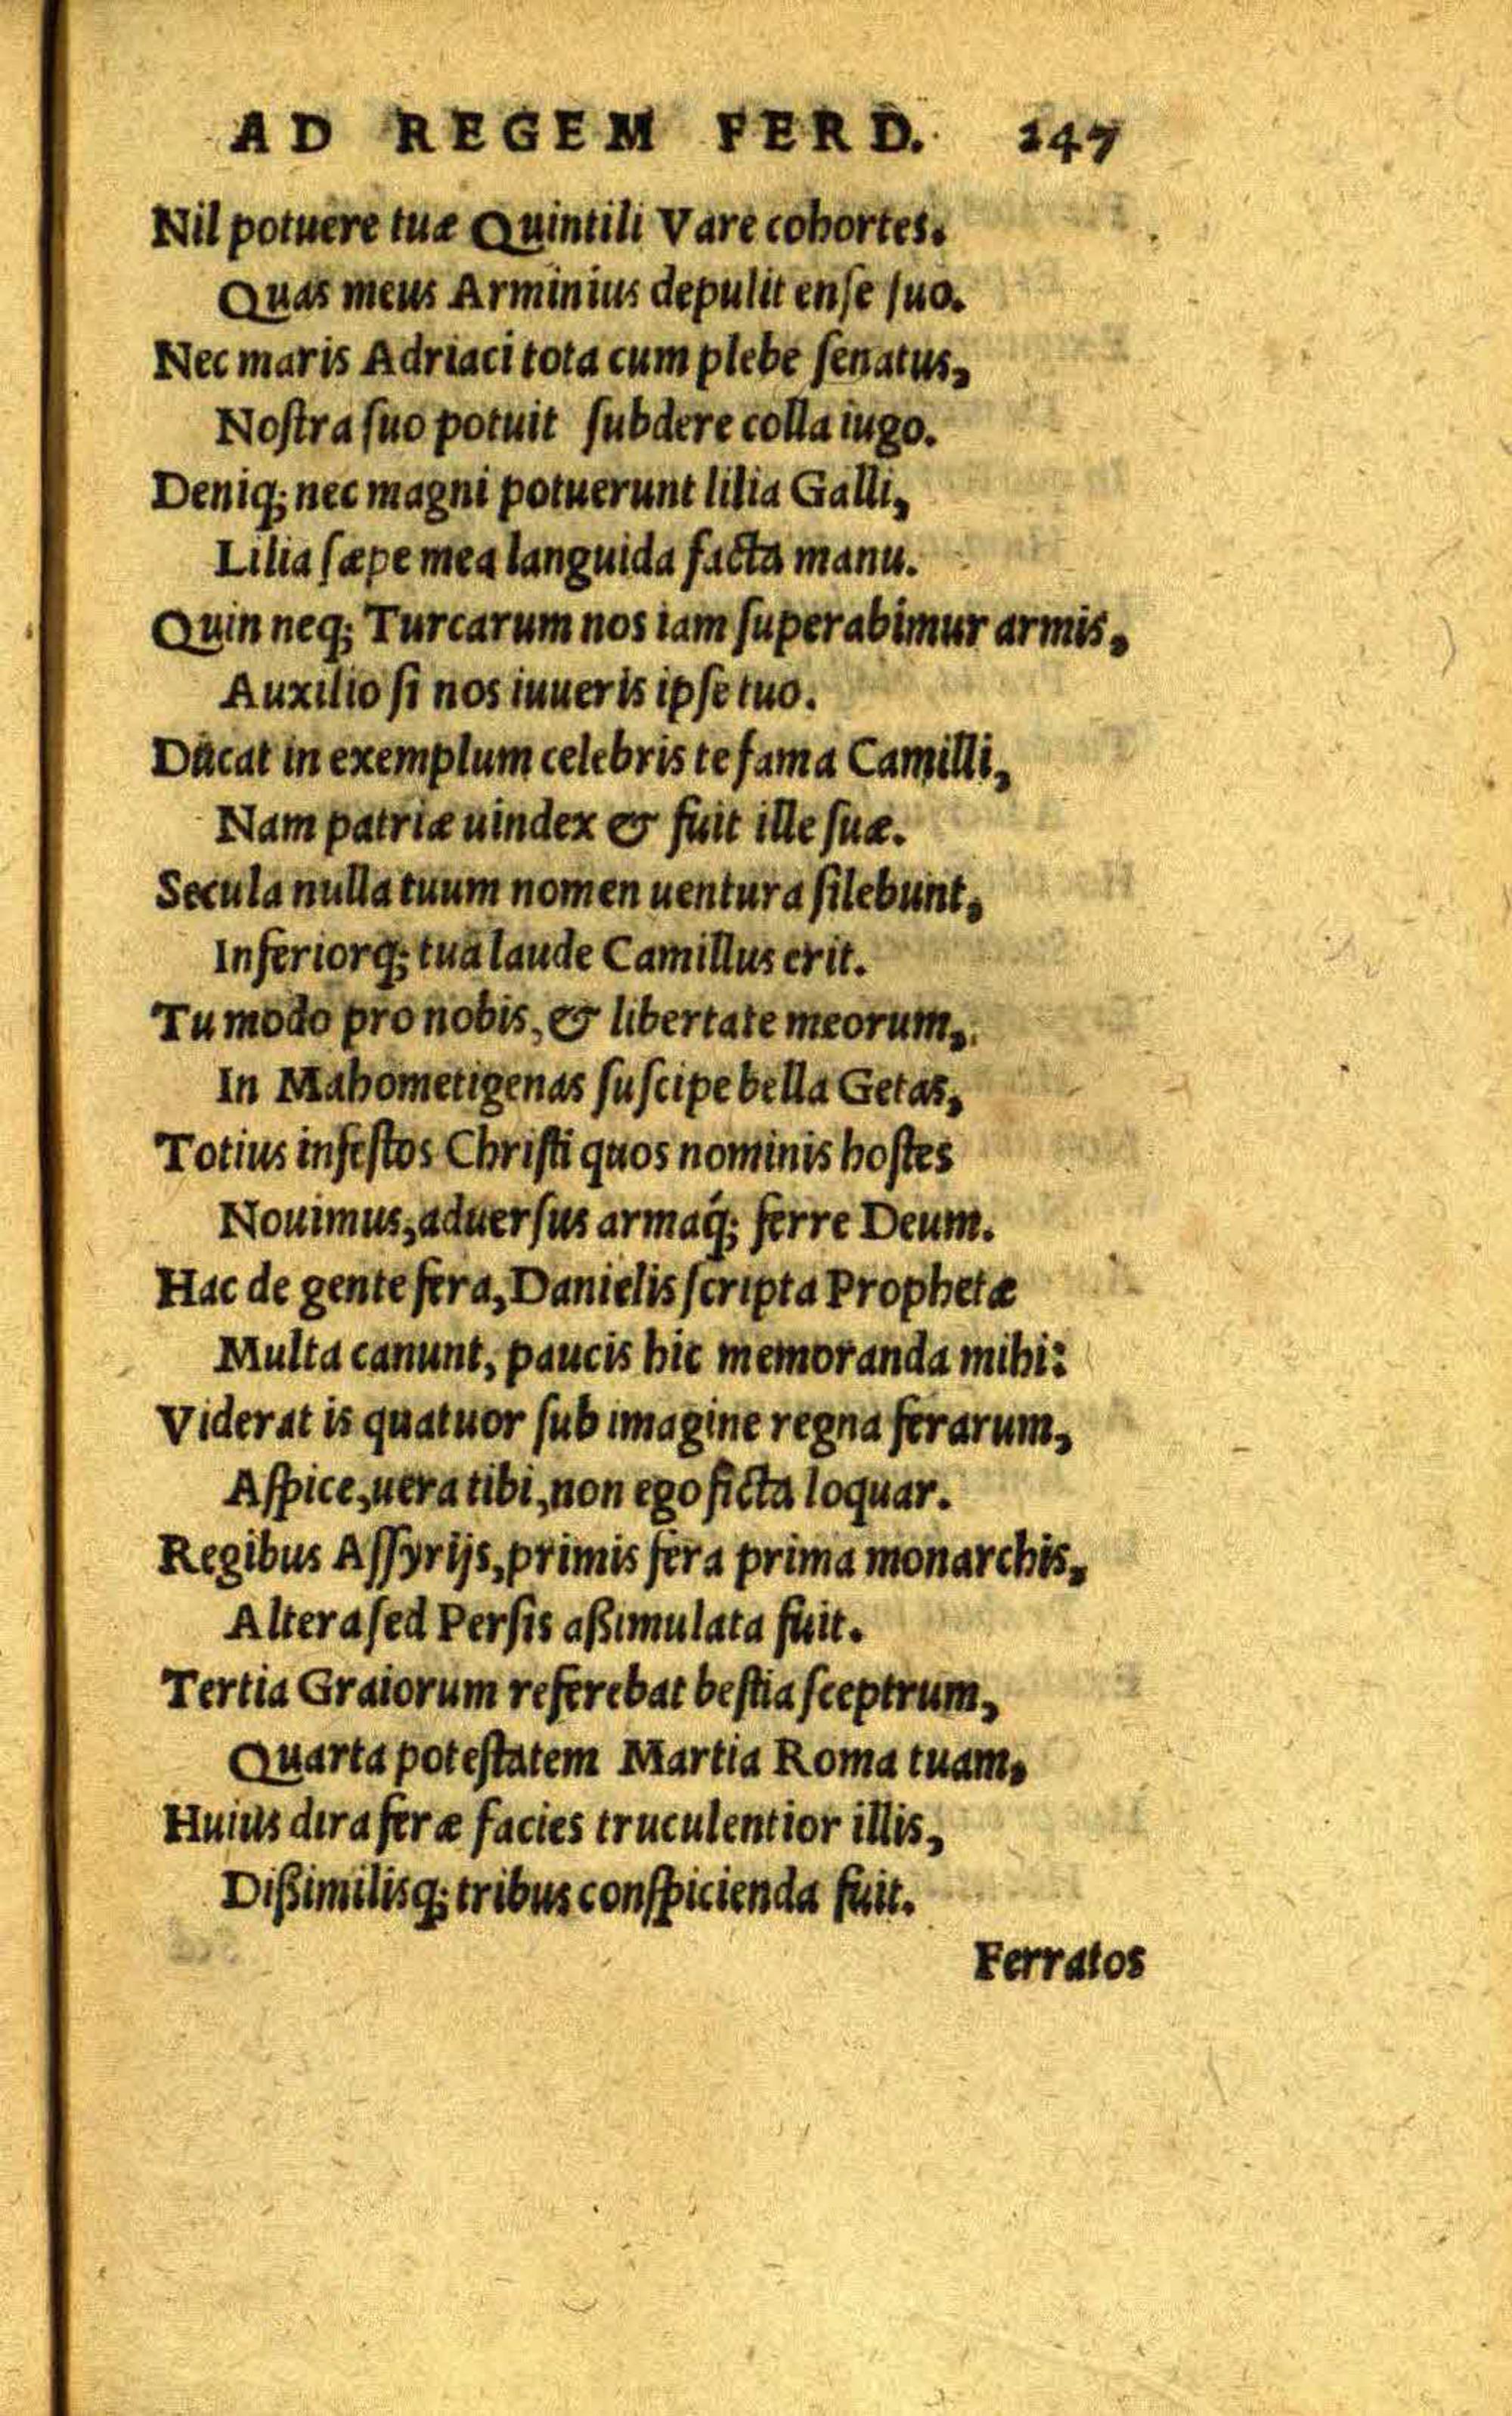 AD REGEM FERD. 247
Nil potuere tuæ Quintili Vare cohortes.
Quas meus Arminius depulit enſe ſuo.
Nec maris Adriaci tota cum plebe ſenatus,
Noſtra ſuo potuit ſubdere colla iugo.
Deniq; nec magni potuerunt lilia Galli,
Lilia ſæpe mea languida facta manu.
Quin neq; Turcarum nos iam ſuperabimur armis,
Auxilio ſi nos iuueris ipſe tuo.
Ducat in exemplum celebris te fama Camilli,
Nam patriæ uindex & fuit ille ſuæ.
Secula nulla tuum nomen uentura ſilebunt,
Inferiorq; tua laude Camillus erit.
Tu modo pro nobis, & libertate meorum,
In Mahometigenas ſuſcipe bella Getas,
Totius infeſtos Chriſti quos nominis hoſtes
Nouimus, aduerſus armaq́; ferre Deum.
Hac de gente fera, Danielis ſcripta Prophetæ
Multa canunt, paucis hic memoranda mihi:
Viderat is quatuor ſub imagine regna ferarum,
Aſpice, uera tibi, non ego ficta loquar.
Regibus Aſſyrijs, primis fera prima monarchis,
Altera ſed Perſis aßimulata fuit.
Tertia Graiorum referebat beſtia ſceptrum,
Quarta poteſtatem Martia Roma tuam,
Huius dira feræ facies truculentior illis,
Dißimilisq; tribus conſpicienda fuit.
Ferratos